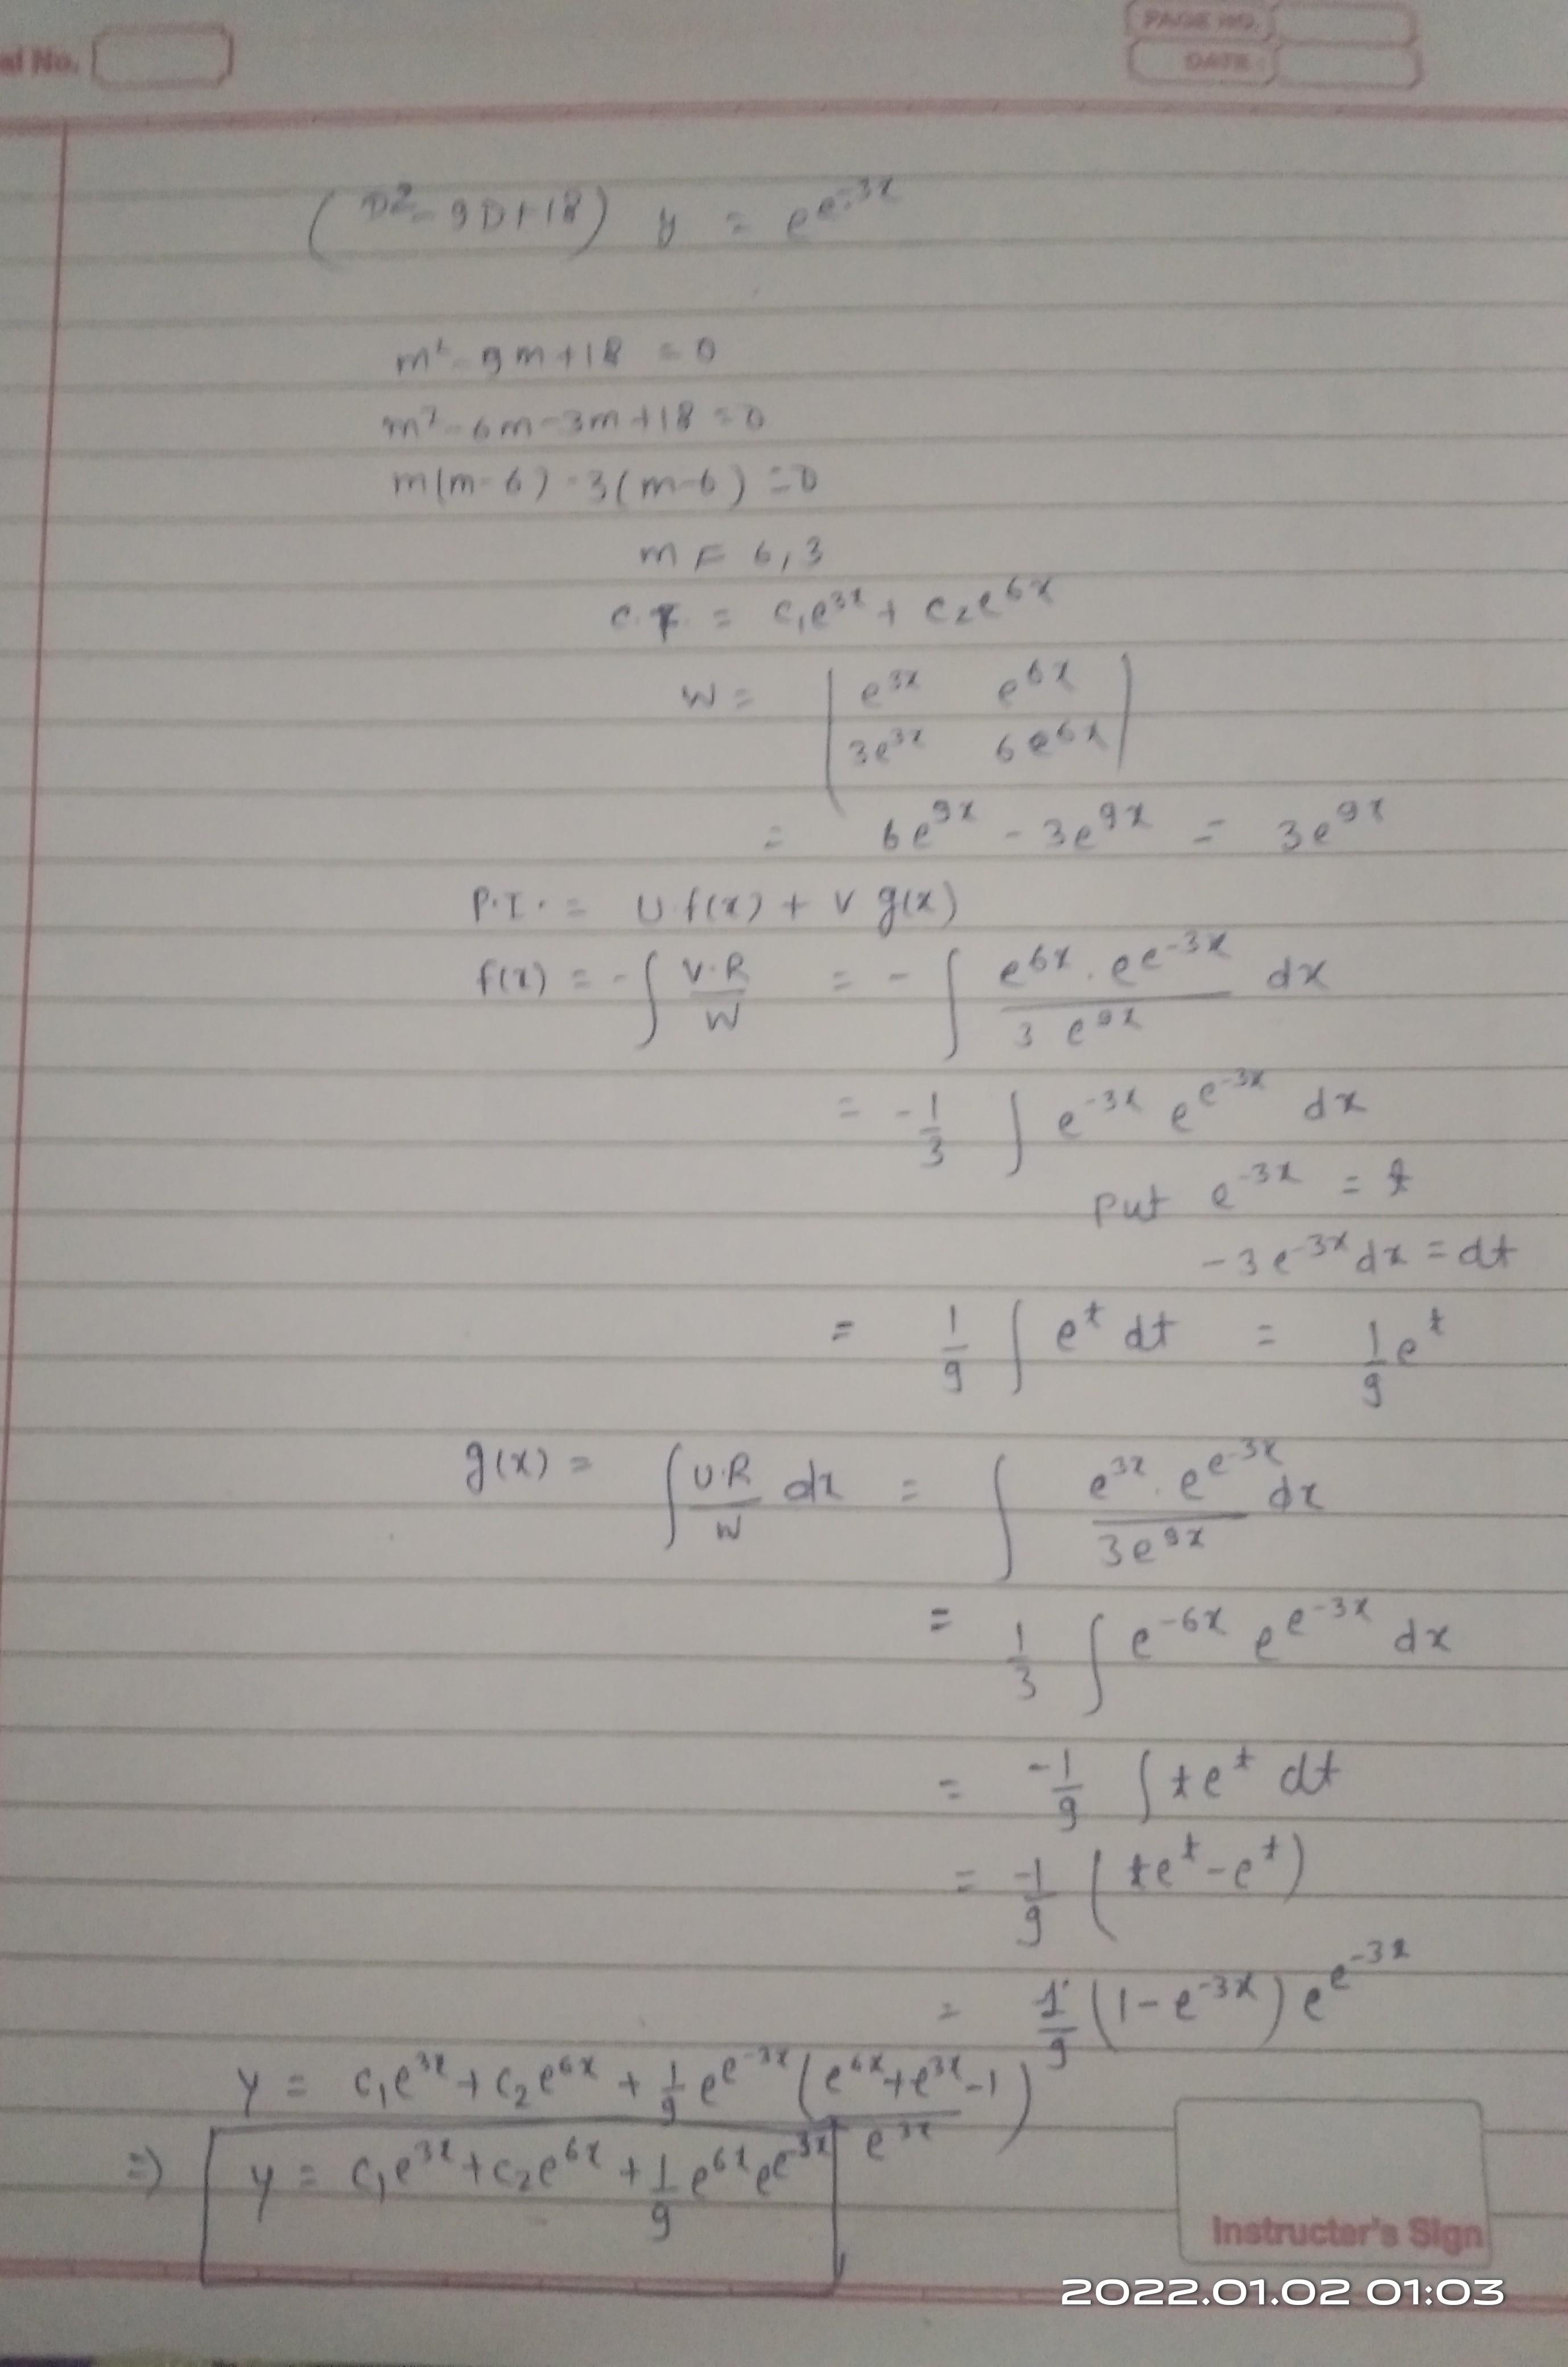 al No.
PAGE NO.
DATE
(D²-9D+18) y = e^e^-3x
m²-9m+18 = 0
m²-6m-3m+18=0
m(m-6)-3(m-6)=0
m = 6,3
C.F. = c₁e^3x + c₂e^6x
W = | e^3x e^6x |
| 3e^3x 6e^6x |
= 6e^9x - 3e^9x = 3e^9x
P.I. = U f(x) + V g(x)
f(x) = -∫ V.R/W = -∫ e^6x . e^e^-3x / 3 e^9x dx
= -1/3 ∫ e^-3x e^e^-3x dx
put e^-3x = t
-3e^-3x dx = dt
= 1/9 ∫ e^t dt = 1/9 e^t
g(x) = ∫ U.R/W dx = ∫ e^3x . e^e^-3x / 3e^9x dx
= 1/3 ∫ e^-6x e^e^-3x dx
= -1/9 ∫ te^t dt
= -1/9 (te^t - e^t)
= 1/9 (1-e^-3x) e^e^-3x
y = c₁e^3x + c₂e^6x + 1/9 e^e^-3x (e^6x + e^3x - 1 / e^3x)
⇒ y = c₁e^3x + c₂e^6x + 1/9 e^6x e^e^-3x
Instructer's Sign
2022.01.02 01:03